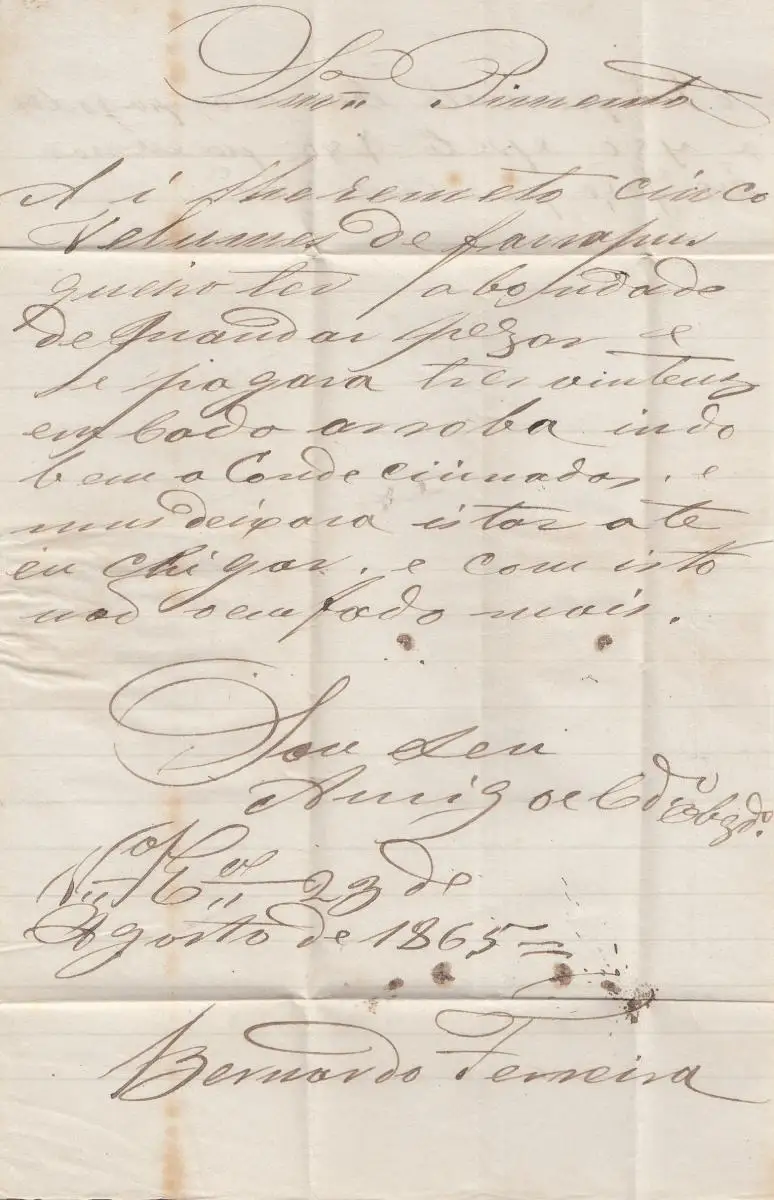 Snr. Pimenta
A i lhe remeto cinco
Volumes de farrapus
queiro ter a bondade
de mandar pezar e
se pagara tres vintenz
em cado arroba indo
bem a Condeciunados. e
mus deixara istar ate
eu chigar. e com isto
nao o emfado mais.
Sou Seu
Amigo e Cdo Obgdo.
23 de
Agosto de 1865
Bernardo Ferreira